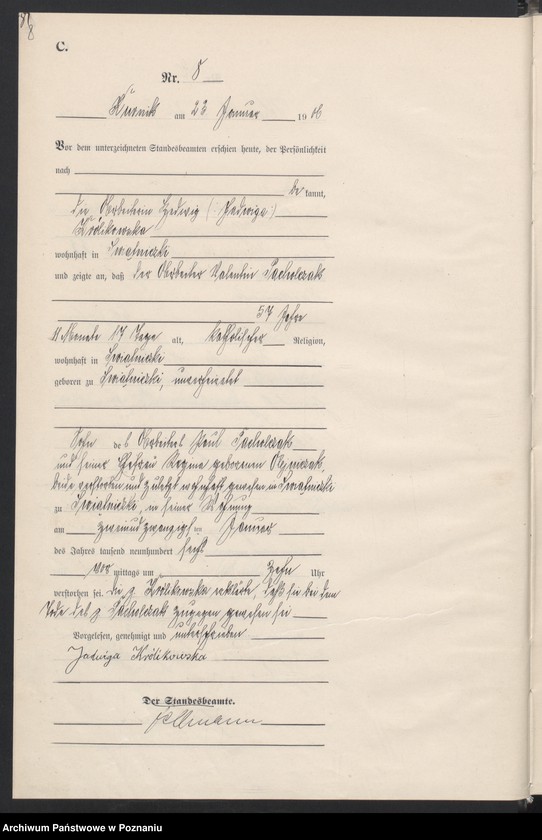 8
C.
Nr. 8
Kurnik am 22 Januar 1906
Vor dem unterzeichneten Standesbeamten erschien heute, der Persönlichkeit
nach
be kannt,
die Arbeiterin Hedwig (: Jadwiga :)
Królikowska
wohnhaft in Swiątniczki
und zeigte an, daß der Arbeiter Valentin Pacholczak
57 Jahre
11 Monate 17 Tage alt, katholischer Religion,
wohnhaft in Swiątniczki
geboren zu Swiątniczki, unverheiratet
Sohn des Arbeiters Paul Pacholczak
und seiner Ehefrau Regina geborenen
beide verstorben und zuletzt wohnhaft gewesen in Swiątniczki
zu Swiątniczki, in seiner Wohnung
am zweiundzwanzigsten Januar
des Jahres tausend neunhundert sechs
Vor mittags um zehn Uhr
verstorben sei. Die p. Królikowska erklärte, daß sie bei dem
Tode des p. Pacholczak zugegen gewesen sei
Vorgelesen, genehmigt und unterschrieben
Jadwiga Królikowska
Der Standesbeamte.
Archiwum Państwowe w Poznaniu